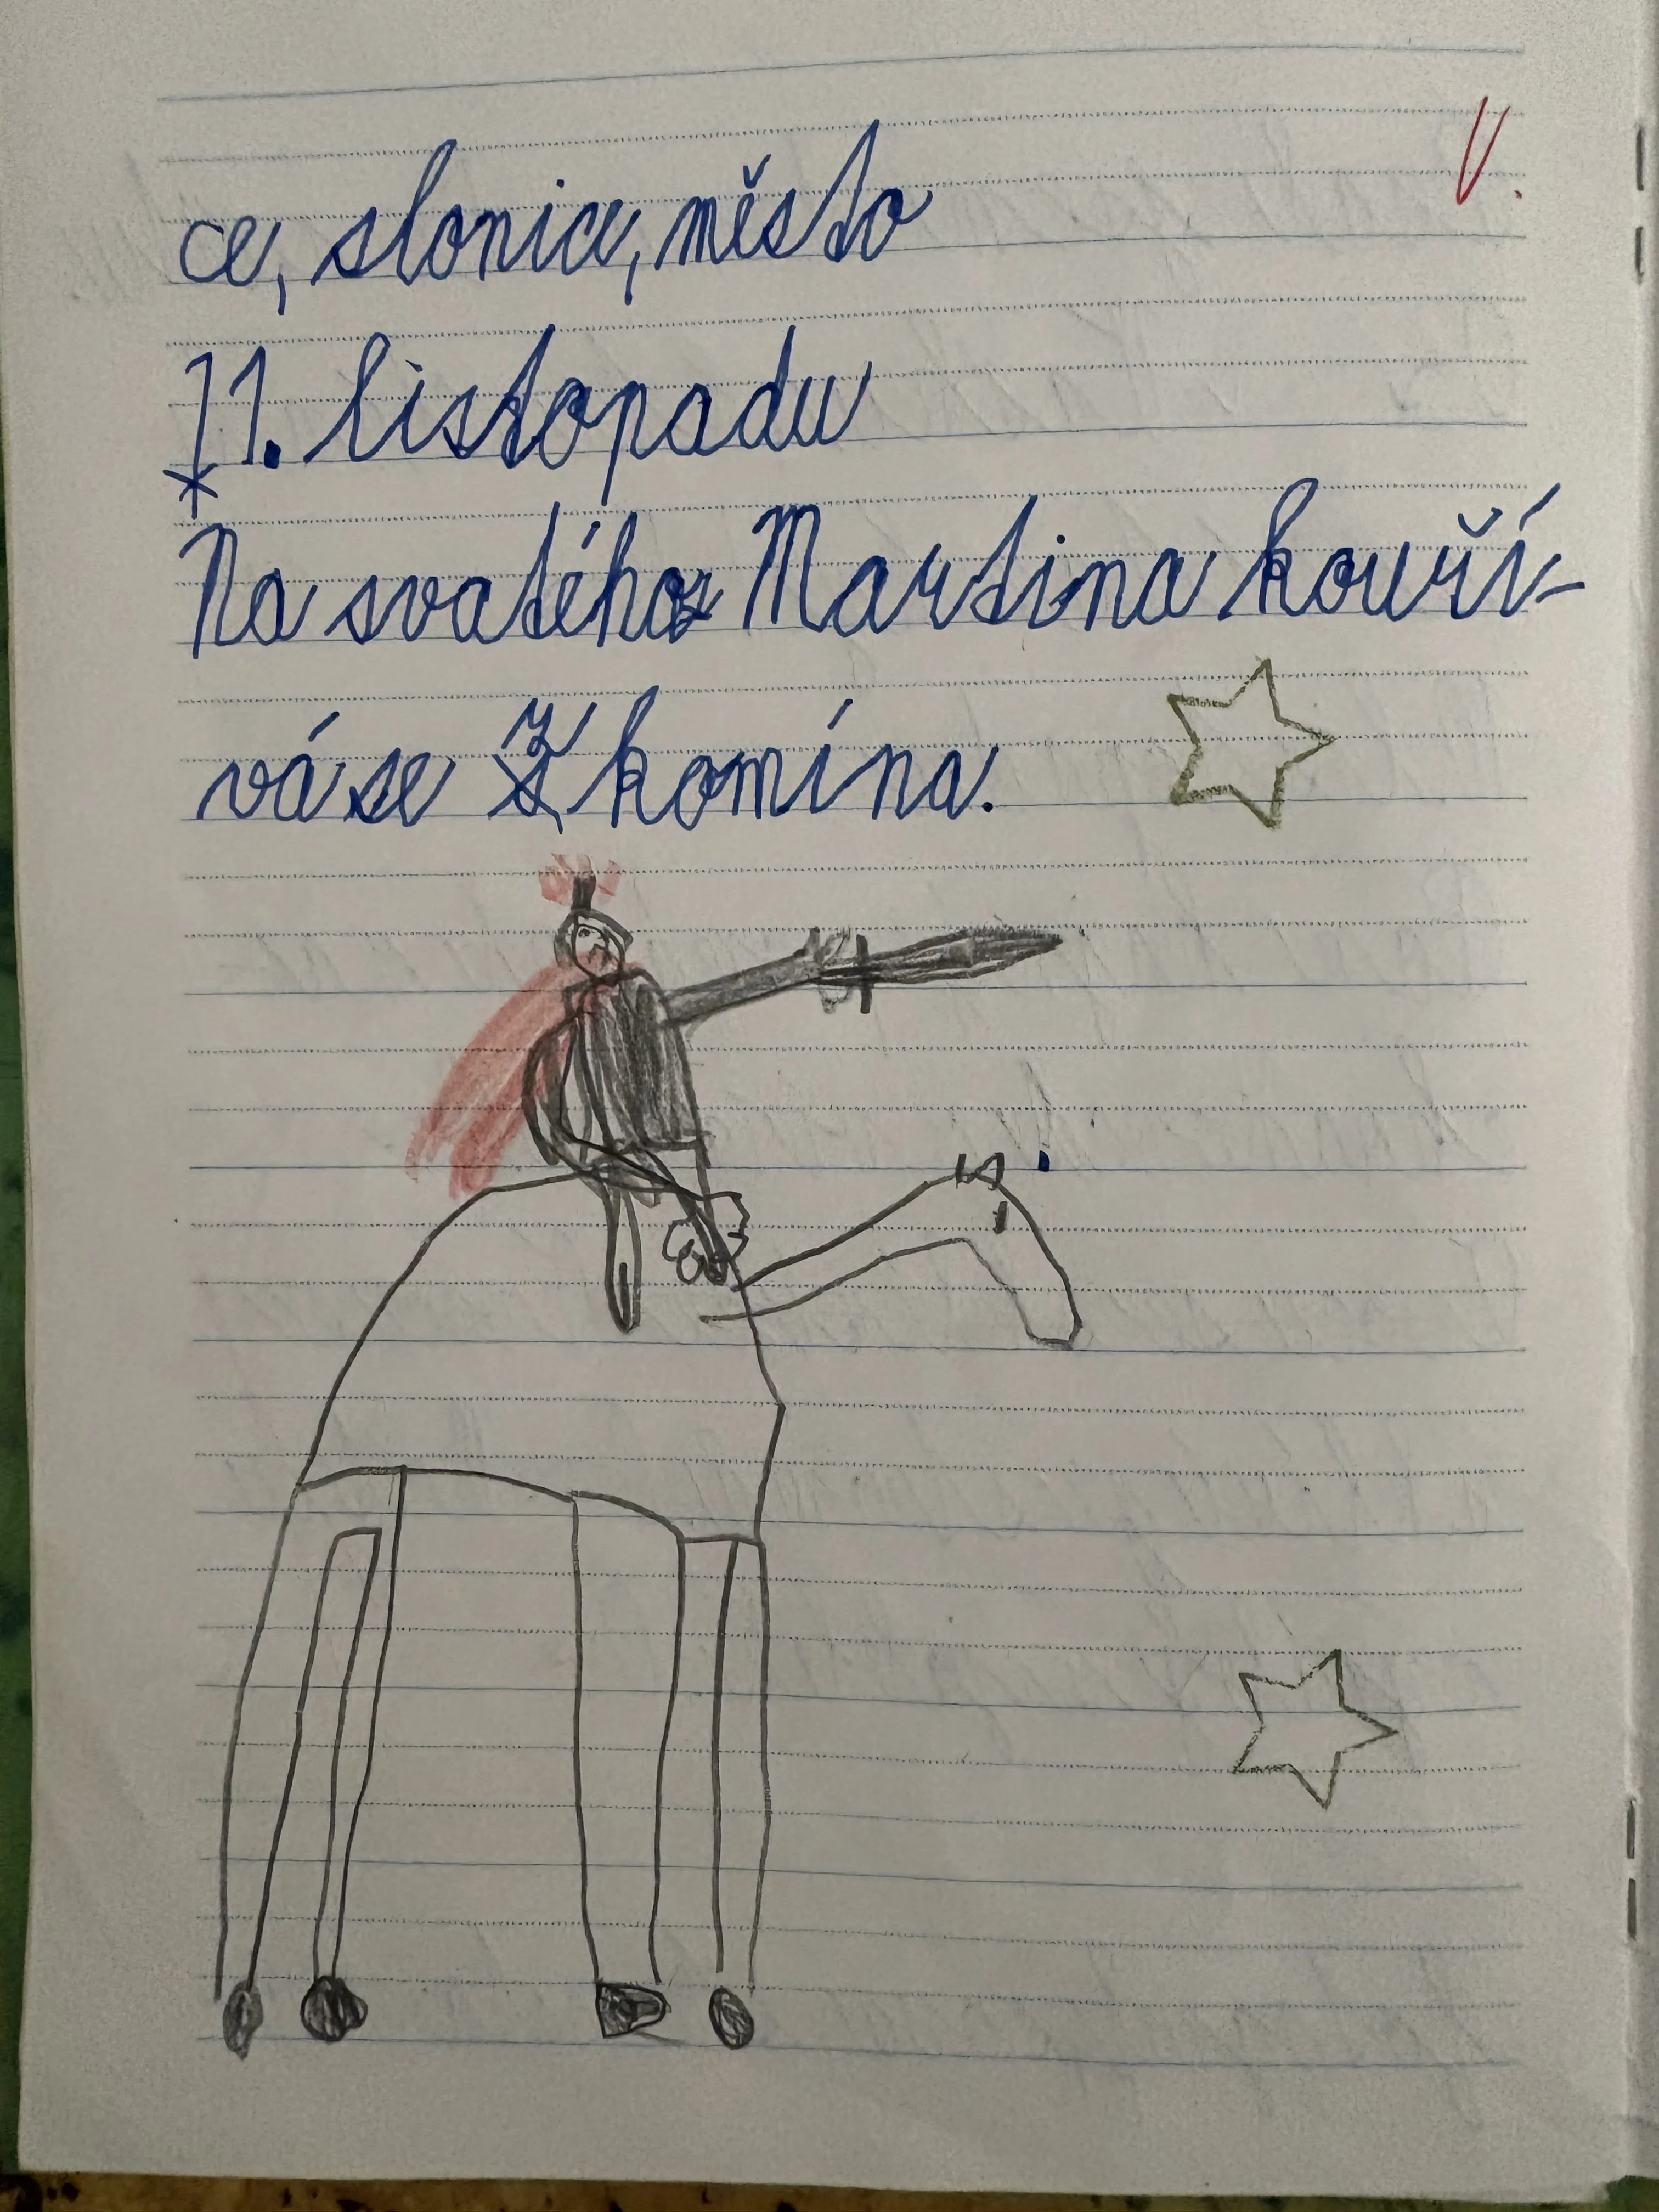 ce, slonice, město
11. listopadu
Na svatého Martina kouří-
vá se z komína.